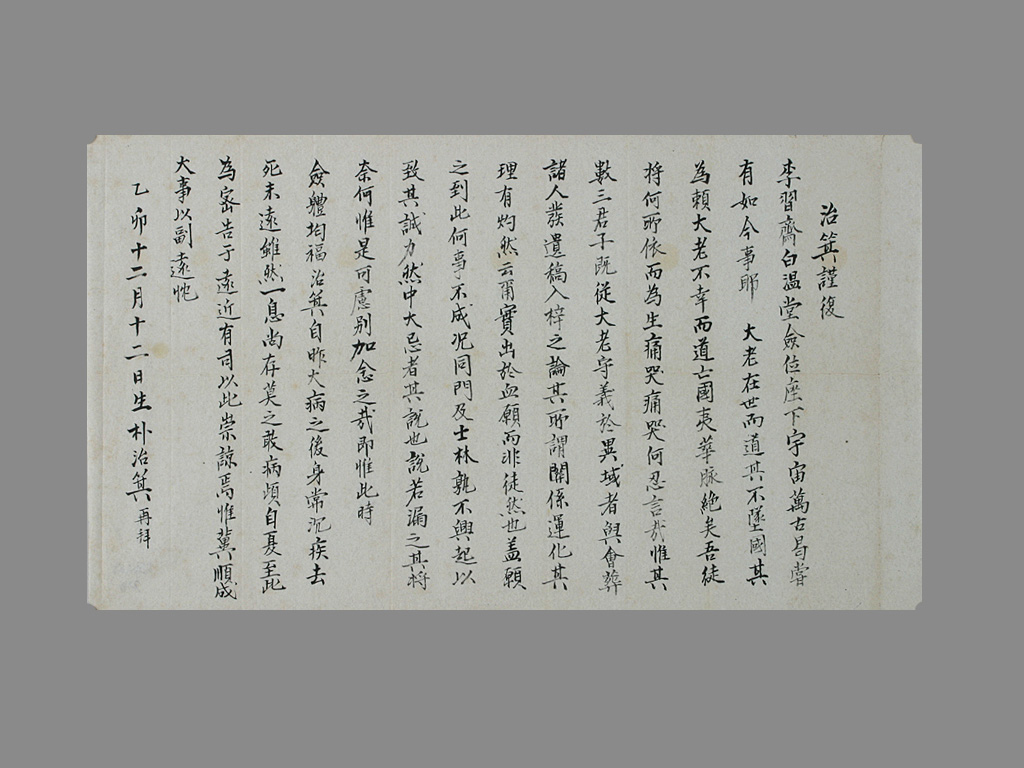 治箕謹復
李習齋白溫堂僉位座下宇宙萬古曷嘗
有如今事耶 大老在世而道其不墜國其
為賴大老不幸而道亡國夷華脉絶矣吾徒
將何所依而為生痛哭痛哭何忍言哉惟其
數三君子既從大老守義於異域者與會葬
諸人發遺稿入梓之論其所謂關係運化其
理有灼然云爾實出於血願而非徒然也盖願
之到此何事不成况同門及士林孰不興起以
致其誠力然中大忌者其說也說若漏之其將
奈何惟是可慮别加念之哉即惟此時
僉體均福治箕自昨大病之後身常沉疾去
死未遠雖然一息尚存莫之敢病頉自夏至此
為密告于遠近有司以此崇諒焉惟冀順成
大事以副遠忱
乙卯十二月十二日生朴治箕再拜